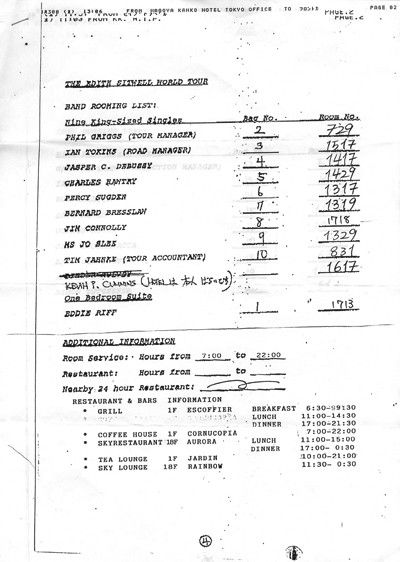 FROM NAGOYA KANKO HOTEL TOKYO OFFICE TO PAGE 02
PAGE.2
THE EDITH SITWELL WORLD TOUR
BAND ROOMING LIST:
Nine King-Sized Singles Bag No. Room No.
PHIL GRIGGS (TOUR MANAGER) 2 729
IAN YOKIMS (ROAD MANAGER) 3 1517
JASPER C. DEBUSSY 4 1417
CHARLES HAWTRY 5 1429
PERCY SUGDEN 6 1317
BERNARD BRESSLAW 7 1319
JIM CONNOLLY 8 1718
MS JO SLEE 9 1329
TIM JAHNKE (TOUR ACCOUNTANT) 10 831
1617
One Bedroom Suite
EDDIE RIFF 1 1713
ADDITIONAL INFORMATION
Room Service: Hours from 7:00 to 22:00
Restaurant: Hours from to
Nearby 24 hour Restaurant:
RESTAURANT & BARS INFORMATION
* GRILL 1F ESCOFFIER BREAKFAST 6:30-9930
LUNCH 11:00-14:30
DINNER 17:00-21:30
* COFFEE HOUSE 1F CORNUCOPIA 7:00-22:00
* SKYRESTAURANT 18F AURORA LUNCH 11:00-15:00
DINNER 17:00- 0:30
* TEA LOUNGE 1F JARDIN 10:00-21:00
* SKY LOUNGE 18F RAINBOW 11:30- 0:30
4